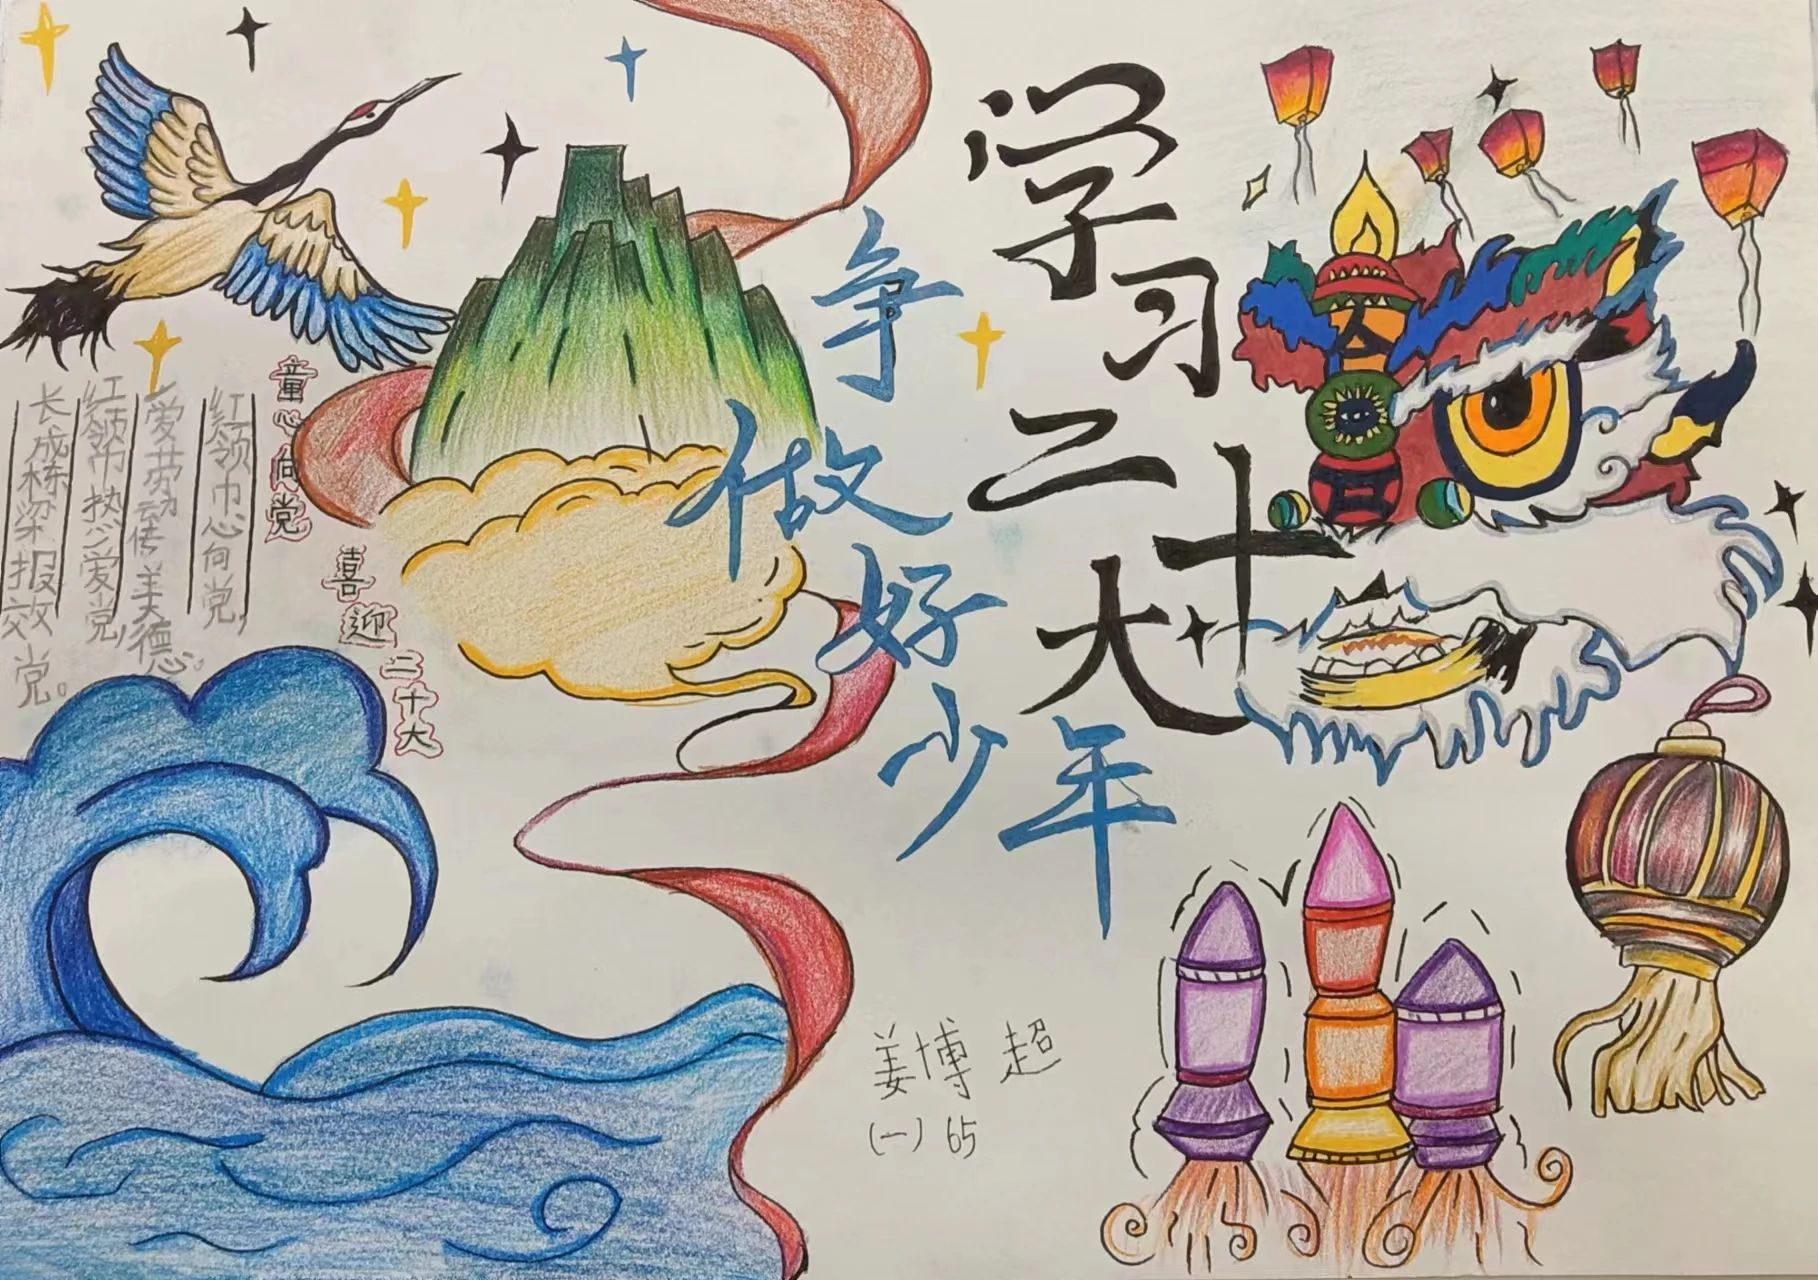 学习二十大
争做好少年
童心向党
喜迎二十大
红领巾心向党,
爱劳动传美德心。
红领巾热爱党,
长成栋梁报效党。
姜博超
(一)65